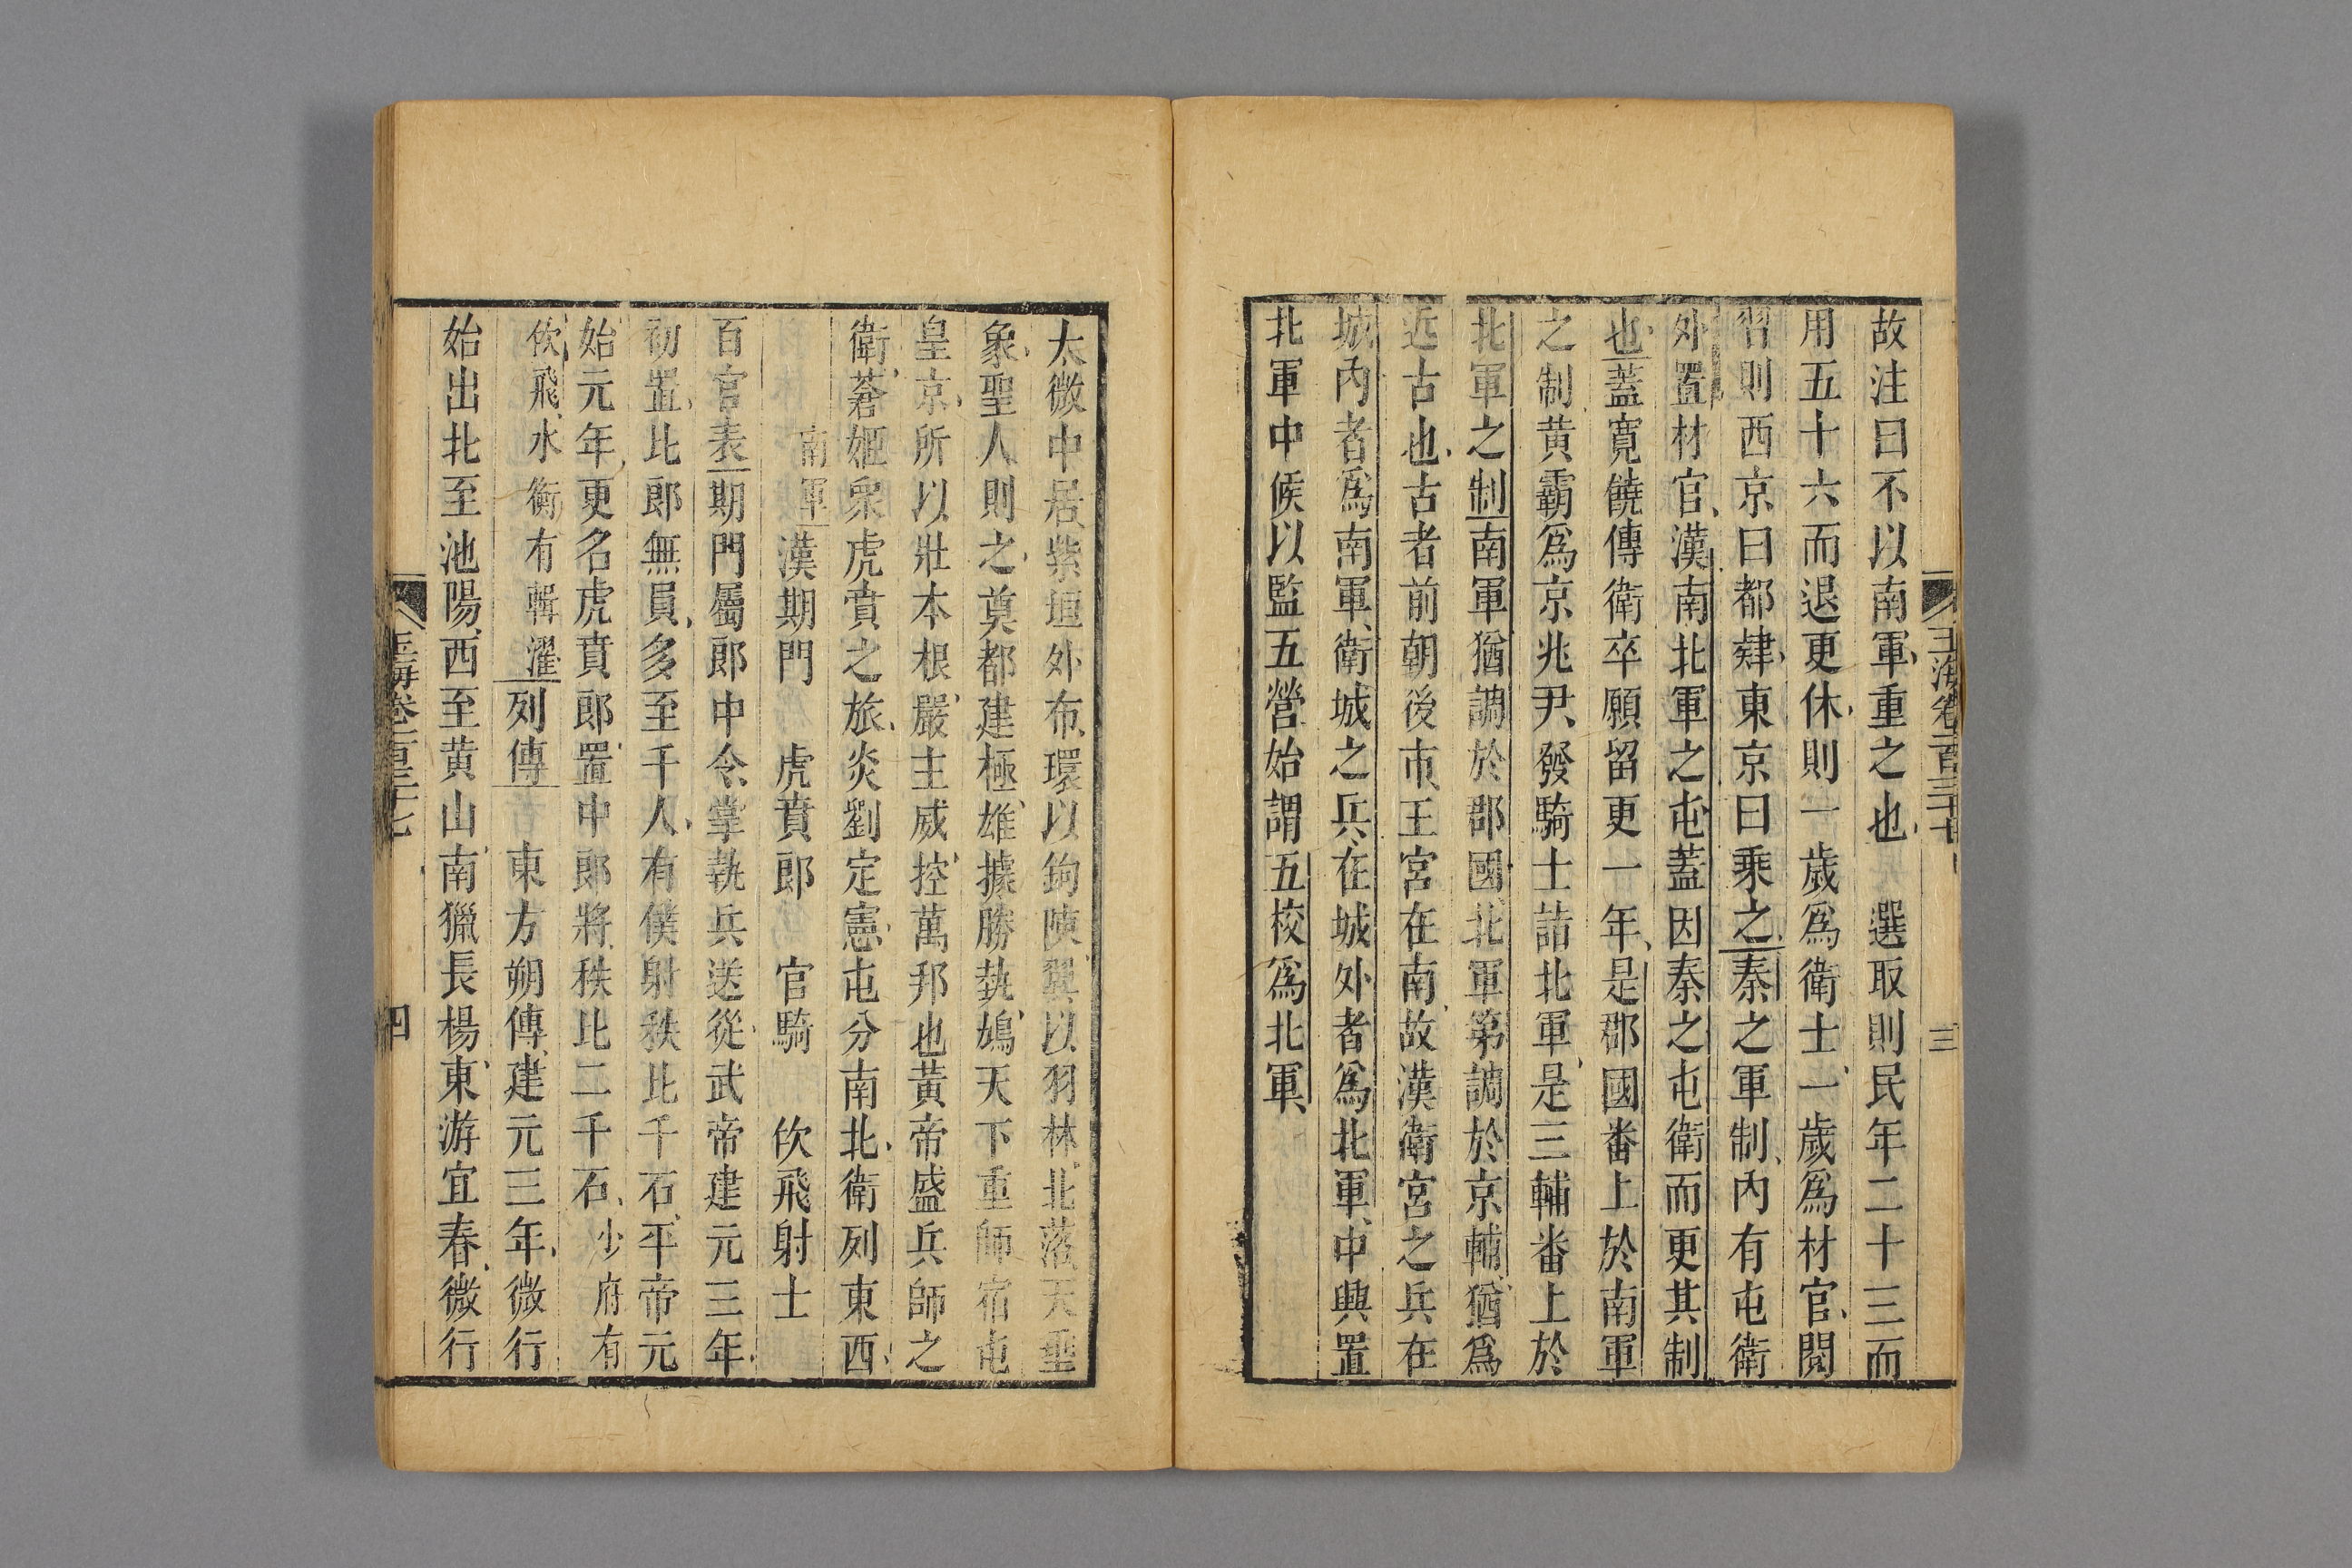 玉海卷一百三十七
三
故注曰不以南軍重之也　選取則民年二十三而
用五十六而退更休則一歲爲衛士一歲爲材官閱
習則西京曰都肄東京曰乘之秦之軍制內有屯衛
外置材官漢南北軍之屯蓋因秦之屯衛而更其制
也蓋寬饒傳衛卒願留更一年是郡國番上於南軍
之制黄霸爲京兆尹發騎士詣北軍是三輔番上於
北軍之制南軍猶調於郡國北軍第調於京輔猶爲
近古也古者前朝後市王宮在南故漢衛宮之兵在
城內者爲南軍衛城之兵在城外者爲北軍中興置
北軍中候以監五營始謂五校爲北軍
太微中居紫垣外布環以鉤陳翼以羽林北落天壘
象聖人則之奠都建極雄據勝埶鳩天下重師宿屯
皇京所以壯本根嚴主威控萬邦也黃帝盛兵師之
衛蒼姬衆虎賁之旅炎劉定憲屯分南北衛列東西
南軍漢期門　虎賁郎　官騎　佽飛射士
百官表期門屬郎中令掌執兵送從武帝建元三年
初置比郎無員多至千人有僕射秩比千石平帝元
始元年更名虎賁郎置中郎將秩比二千石少府有
佽飛水衡有輯濯列傳　東方朔傳建元三年微行
始出北至池陽西至黄山南獵長楊東游宜春微行
玉海卷一百三十七
四